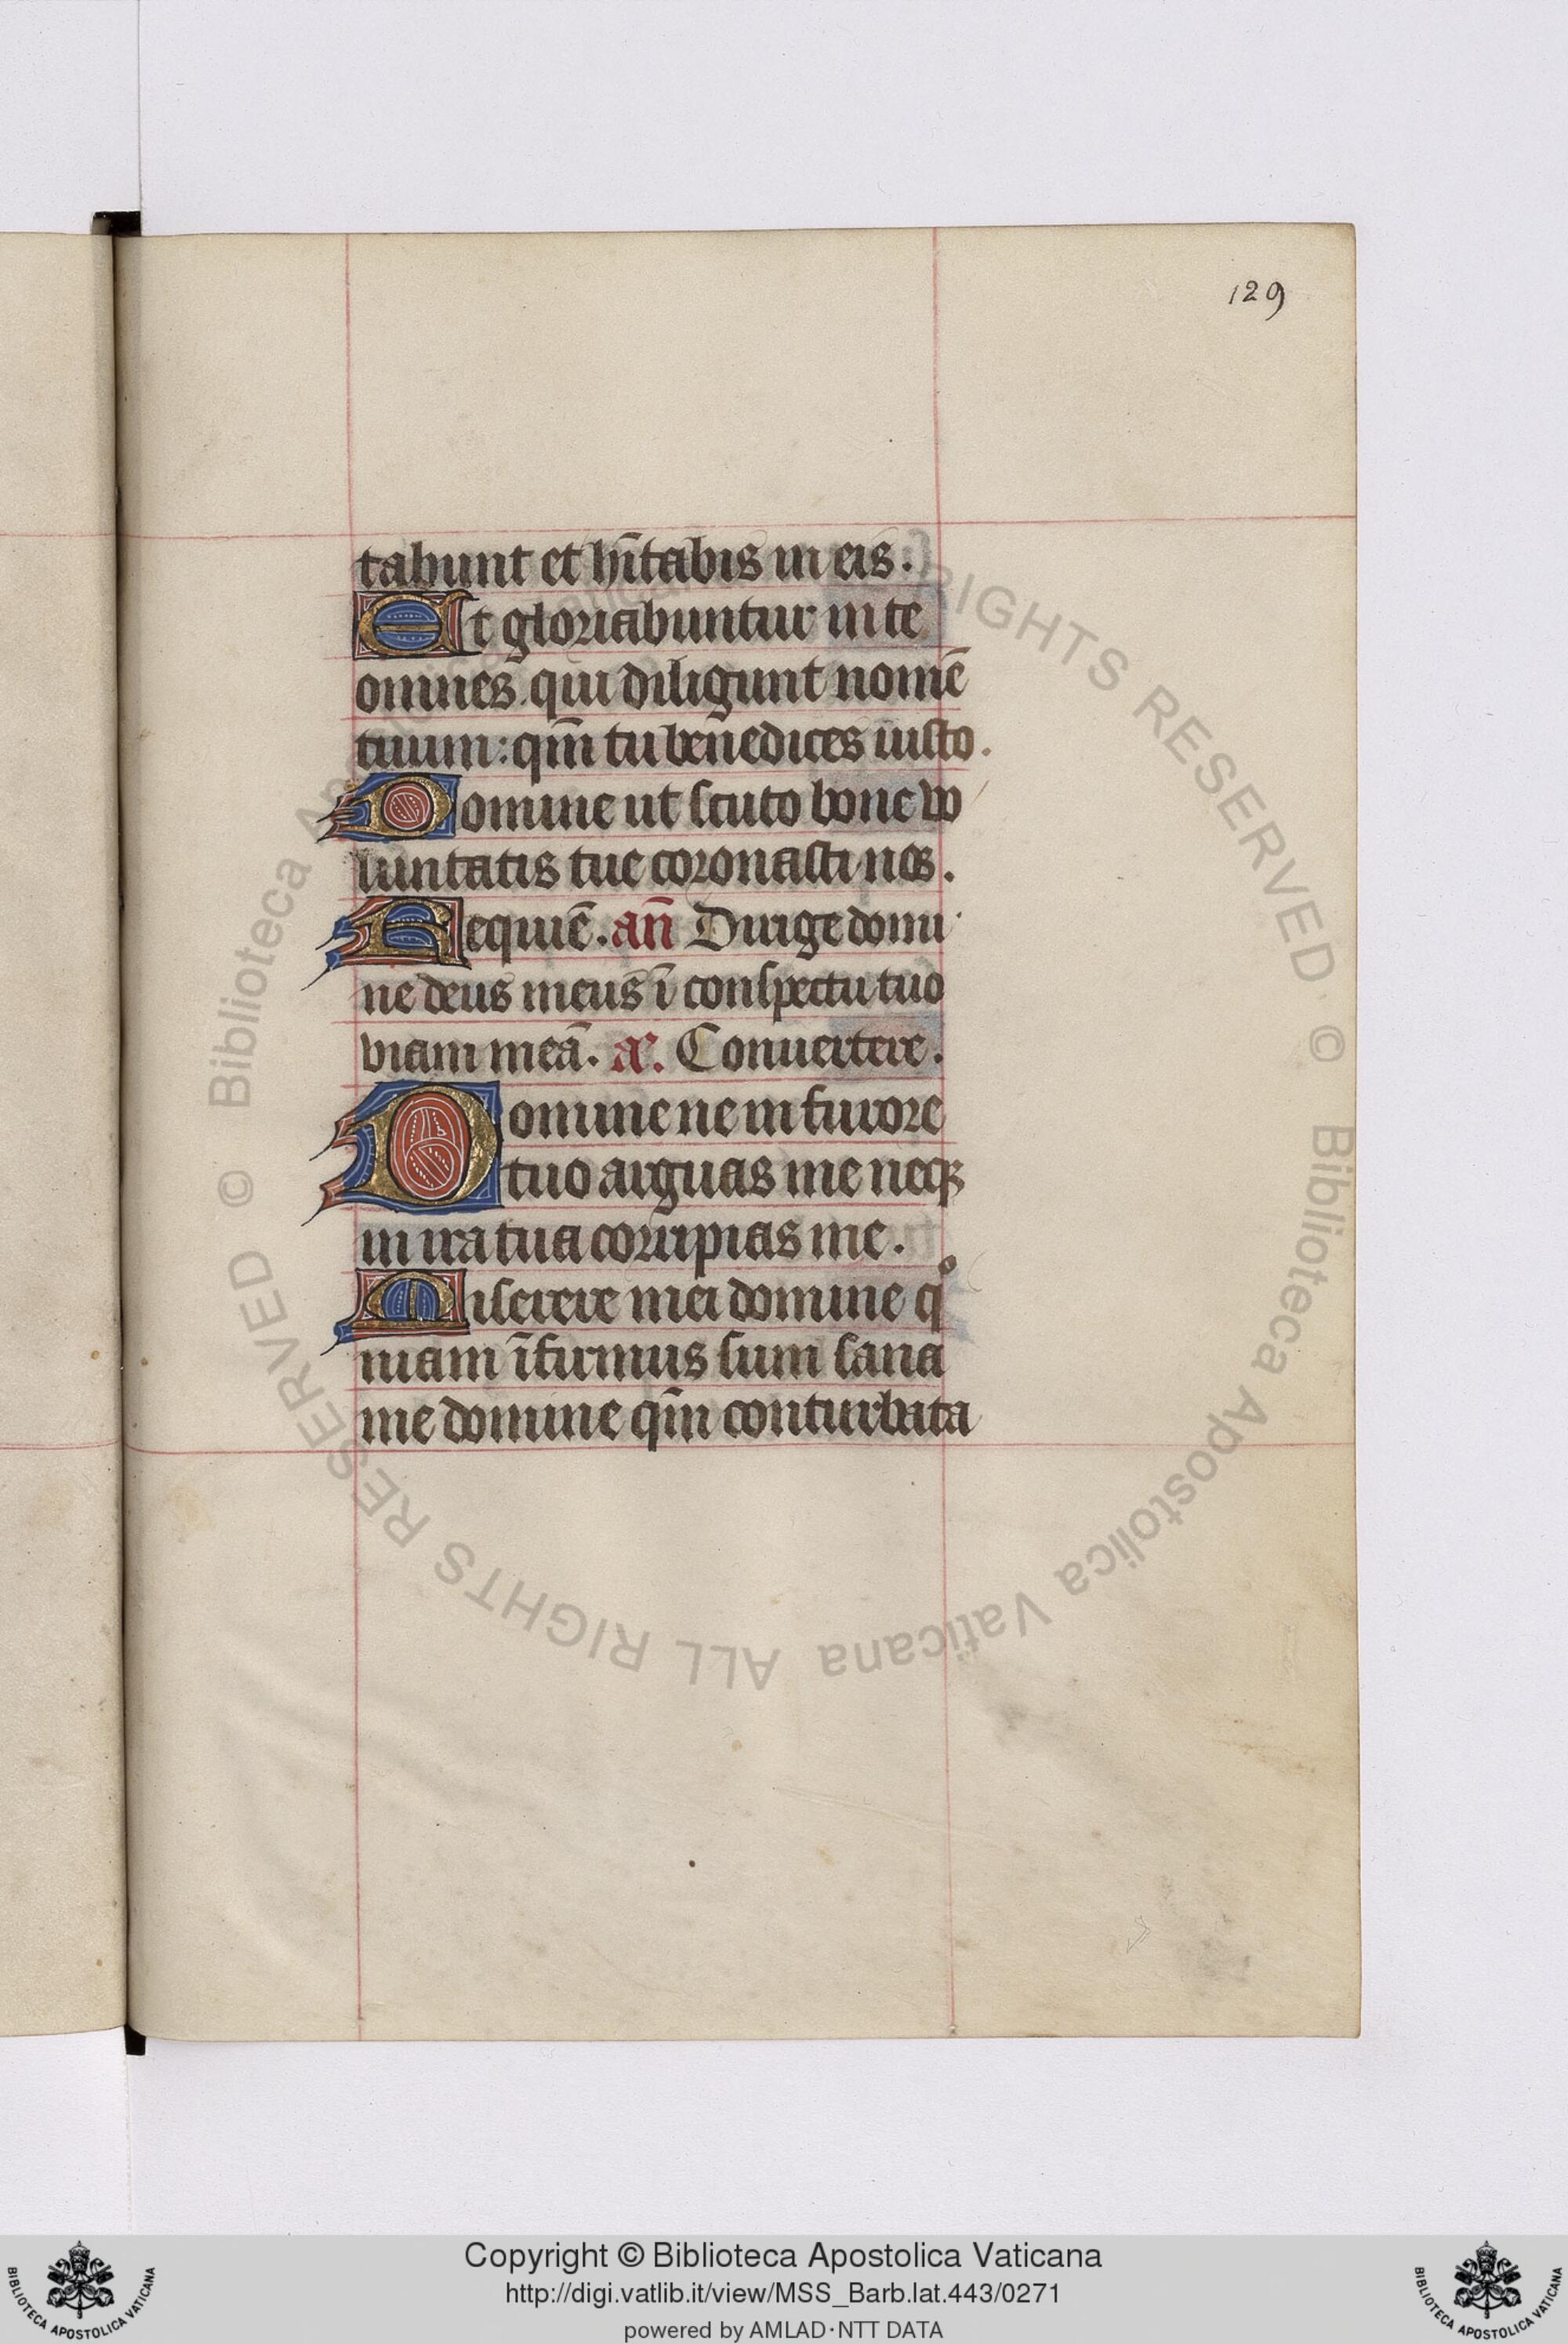 129
tabunt et hītabis in eis.
Et gloriabuntur in te
omnes qui diligunt nomē
tuum: qm̄ tu benedices iusto.
Domine ut scuto bone vo
luntatis tue coronasti nos.
Requiē. an̄ Dirige domi
ne deus meus ī conspectu tuo
viam meā. aᵉ. Conuertere.
Domine ne in furore
tuo arguas me neqꝫ
in ira tua corripias me.
Miserere mei domine qᵒ
niam īfirmus sum sana
me domine qm̄ conturbata
© Biblioteca Apostolica Vaticana ALL RIGHTS RESERVED
© Biblioteca Apostolica Vaticana ALL RIGHTS RESERVED
Copyright © Biblioteca Apostolica Vaticana
http://digi.vatlib.it/view/MSS_Barb.lat.443/0271
powered by AMLAD·NTT DATA
BIBLIOTECA APOSTOLICA VATICANA
BIBLIOTECA APOSTOLICA VATICANA